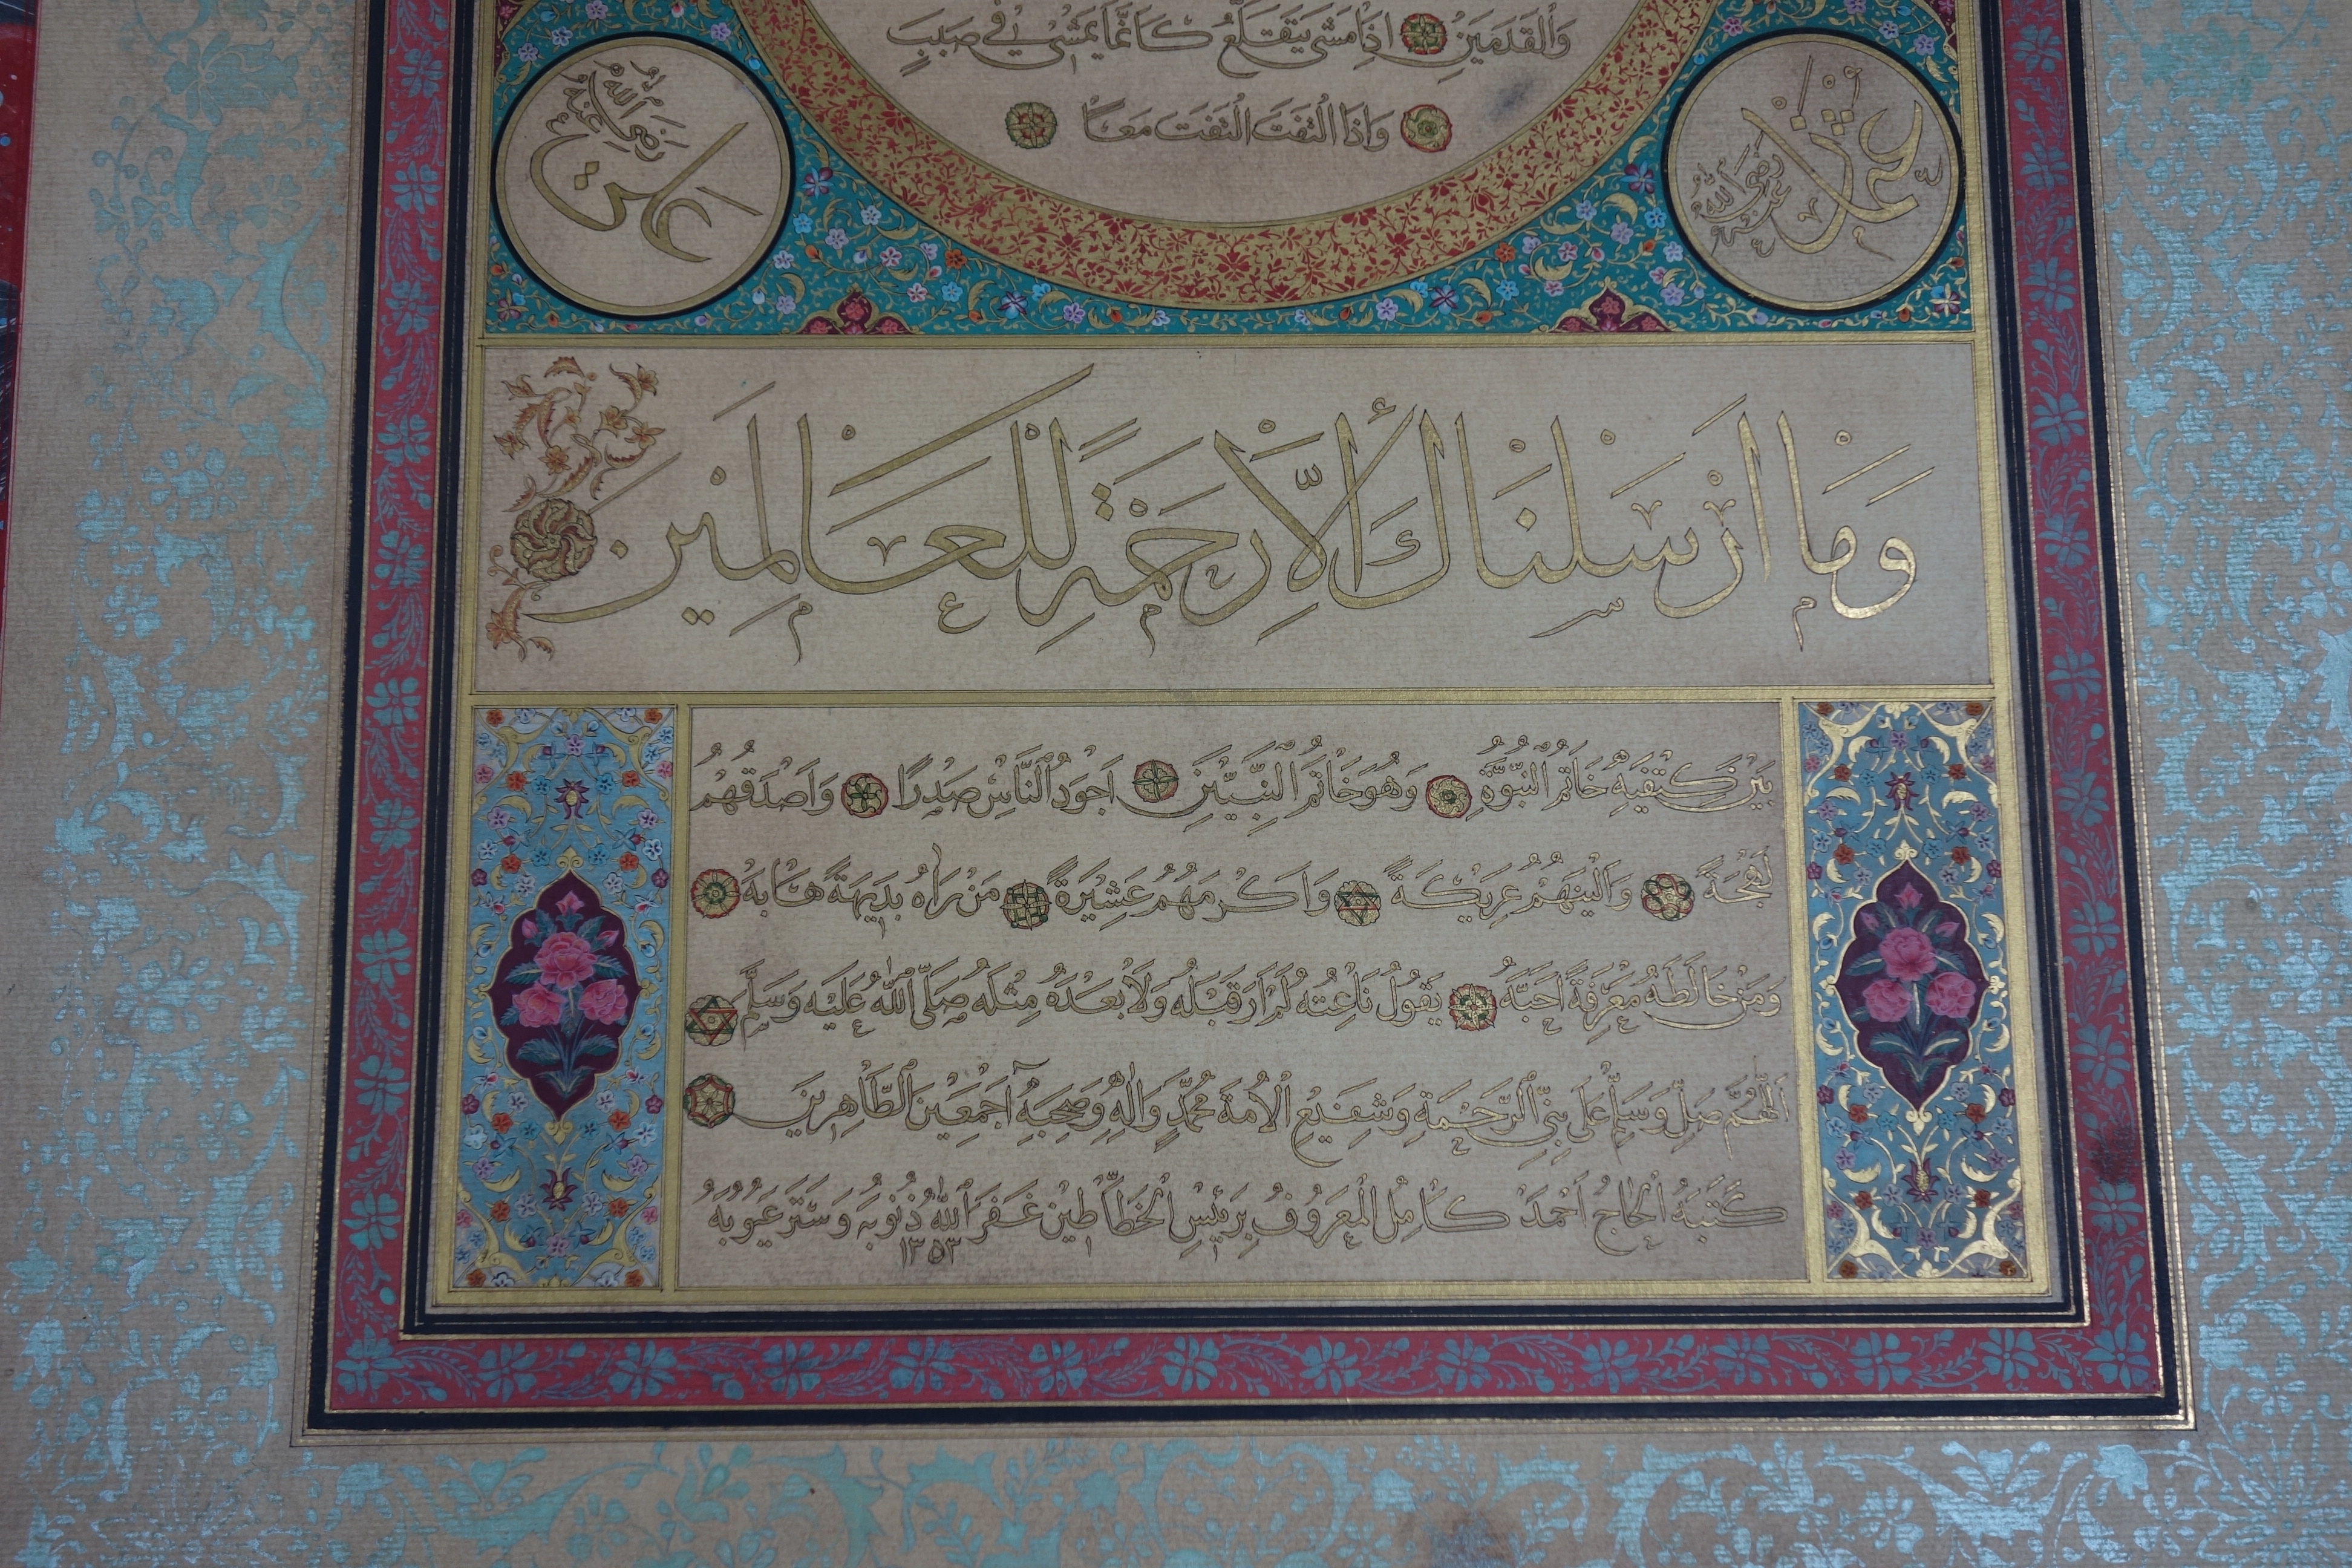 وَالْقَدَمَيْنِ اِذَا مَشٰى يَتَقَلَّعُ كَاَنَّمَا يَمْشٖى فٖى صَبَبٍ
وَاِذَا الْتَفَتَ الْتَفَتَ مَعًا
عثمان رضى الله عنه
على رضى الله عنه
وَمَا اَرْسَلْنَاكَ اِلَّا رَحْمَةً لِلْعَالَمِينَ
بَيْنَ كَتِفَيْهِ خَاتَمُ النُّبُوَّةِ وَهُوَ خَاتَمُ النَّبِيّٖينَ اَجْوَدُ النَّاسِ صَدْرًا وَاَصْدَقُهُمْ
لَهْجَةً وَاَلْيَنُهُمْ عَرِيكَةً وَاَكْرَمُهُمْ عَشِيرَةً مَنْ رَاٰهُ بَدِيهَةً هَابَهُ
وَمَنْ خَالَطَهُ مَعْرِفَةً اَحَبَّهُ يَقُولُ نَاعِتُهُ لَمْ اَرَ قَبْلَهُ وَلَا بَعْدَهُ مِثْلَهُ صَلَّى اللّٰهُ عَلَيْهِ وَسَلَّمَ
اَللّٰهُمَّ صَلِّ وَسَلِّمْ عَلٰى نَبِىِّ الرَّحْمَةِ وَشَفِيعِ الْاُمَّةِ مُحَمَّدٍ وَاٰلِهِ وَصَحْبِهِ اَجْمَعِينَ الطَّاهِرِينَ
كَتَبَهُ الْحَاجُّ اَحْمَدْ كَامِلُ الْمَعْرُوفُ بِرَئِيسِ الْخَطَّاطِينَ غَفَرَ اللّٰهُ ذُنُوبَهُ وَسَتَرَ عُيُوبَهُ
١٣٥٣